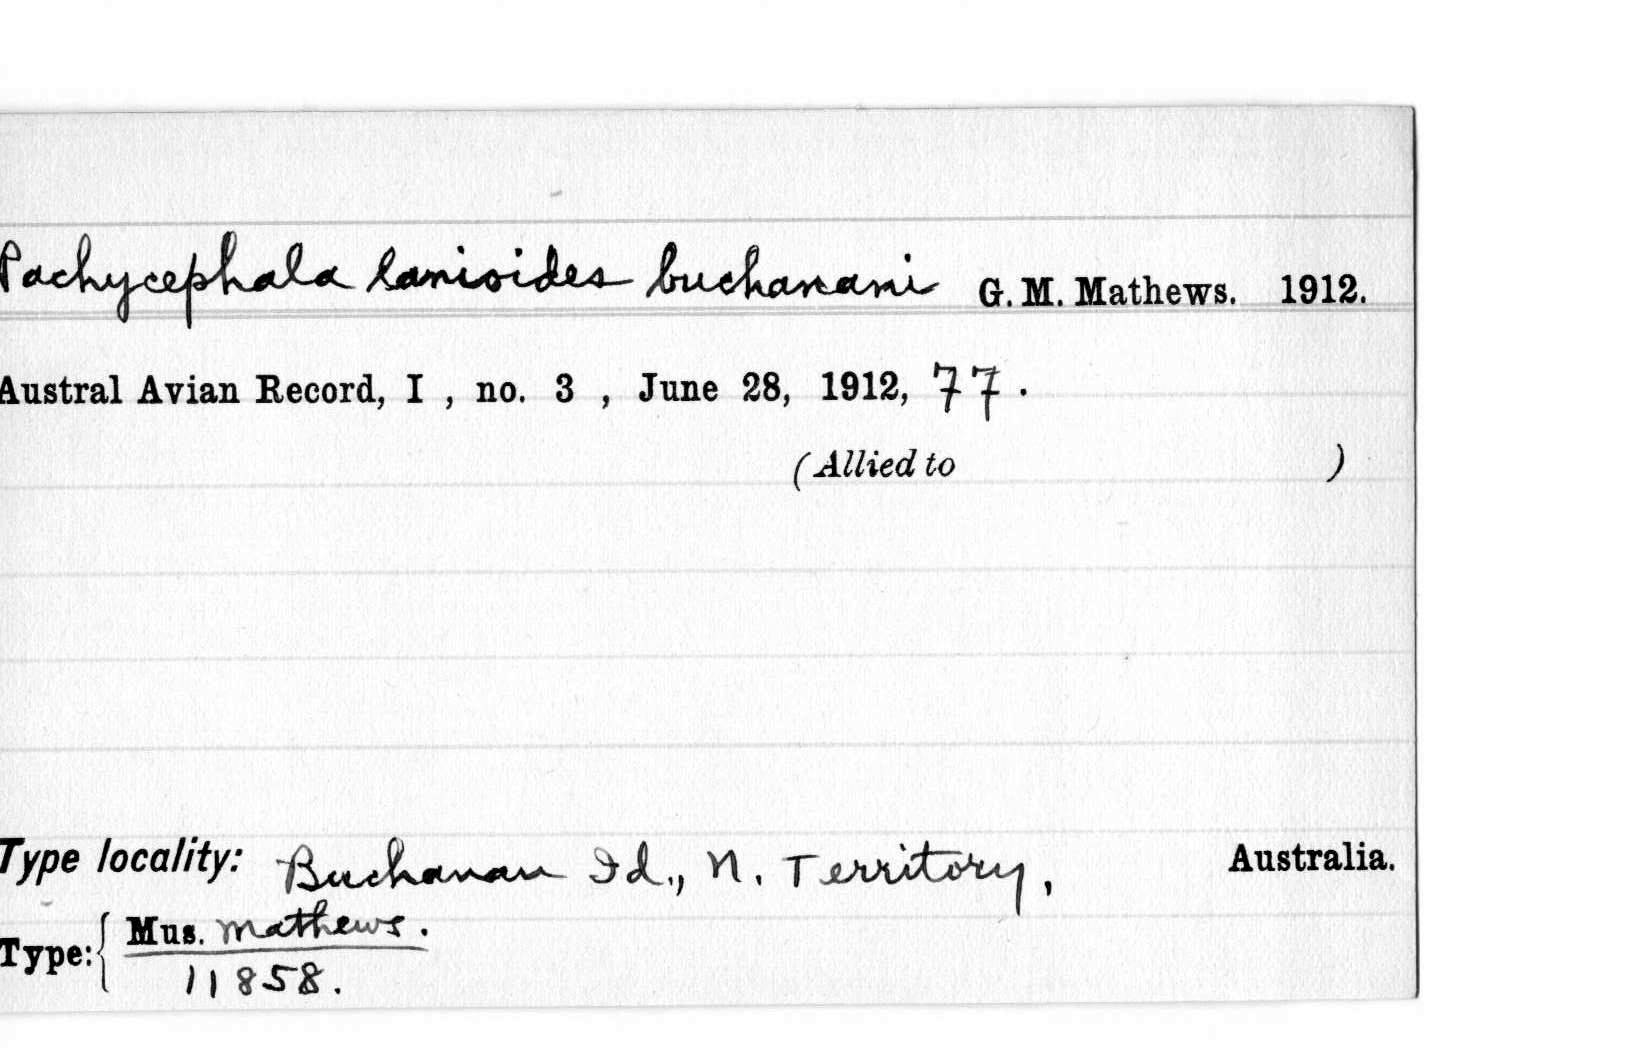 Pachycephala lanioides buchanani G. M. Mathews. 1912.
Austral Avian Record, I , no. 3 , June 28, 1912, 77.
(Allied to )
Type locality: Buchanan Id., N. Territory, Australia.
Type: { Mus. Mathews.
11858.